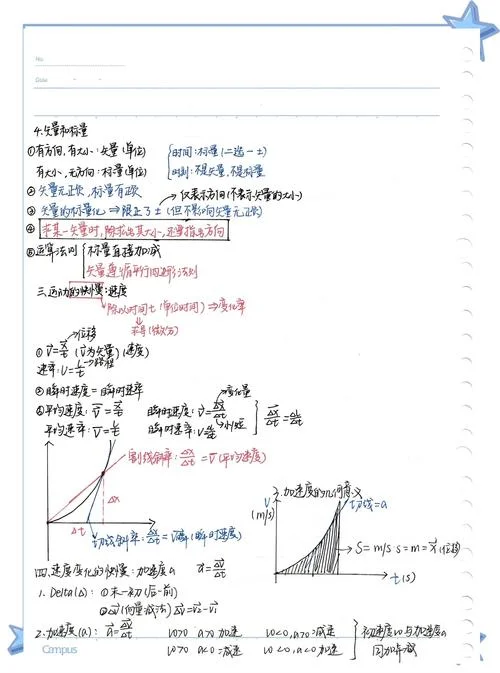 No.
Date
4.矢量和标量
①有方向,有大小:矢量(单位) 时间:标量(二选一±)
有大小,无方向:标量(单位) 时刻:不是矢量,不是标量
②矢量无正负,标量有正负
仅表示方向(不表示矢量的大小)
③矢量的标量化⇒限正了±(但不影响矢量无正负)
④求某一矢量时,除求出其大小,还要指出方向
⑤运算法则 标量直接加减
矢量遵循平行四边形法则
三.运动的快慢:速度
除以时间t(单位时间)⇒变化率
求导(微分)
位移
①v̄=x/t (v̄为矢量)(速度)
速率:v=L/t→路程
②瞬时速度=瞬时速率
变化量
④平均速度:v̄=x/t 瞬时速度:v̄=Δx/Δt
平均速率:v̄=L/t 瞬时速率:v=L/t→小/短
割线斜率:Δx/Δt=v̄(平均速度)
Δx
Δt
切线斜率:Δx/Δt=v瞬(瞬时速度)
3.加速度的几何意义
v
(m/s)
切线=a
S=m/s·s=m=x(位移)
t(s)
四.速度变化的快慢:加速度a a=Δv/Δt
1.Delta(Δ):①末-初(后-前)
②Δv(向量减法)Δv=v2-v1
2.加速度(a):a=Δv/Δt v0>0 a>0 加速 v0<0,a>0=减速
v0>0 a<0=减速 v0<0,a<0 加速
初速度v0与加速度a
同加异减
Campus